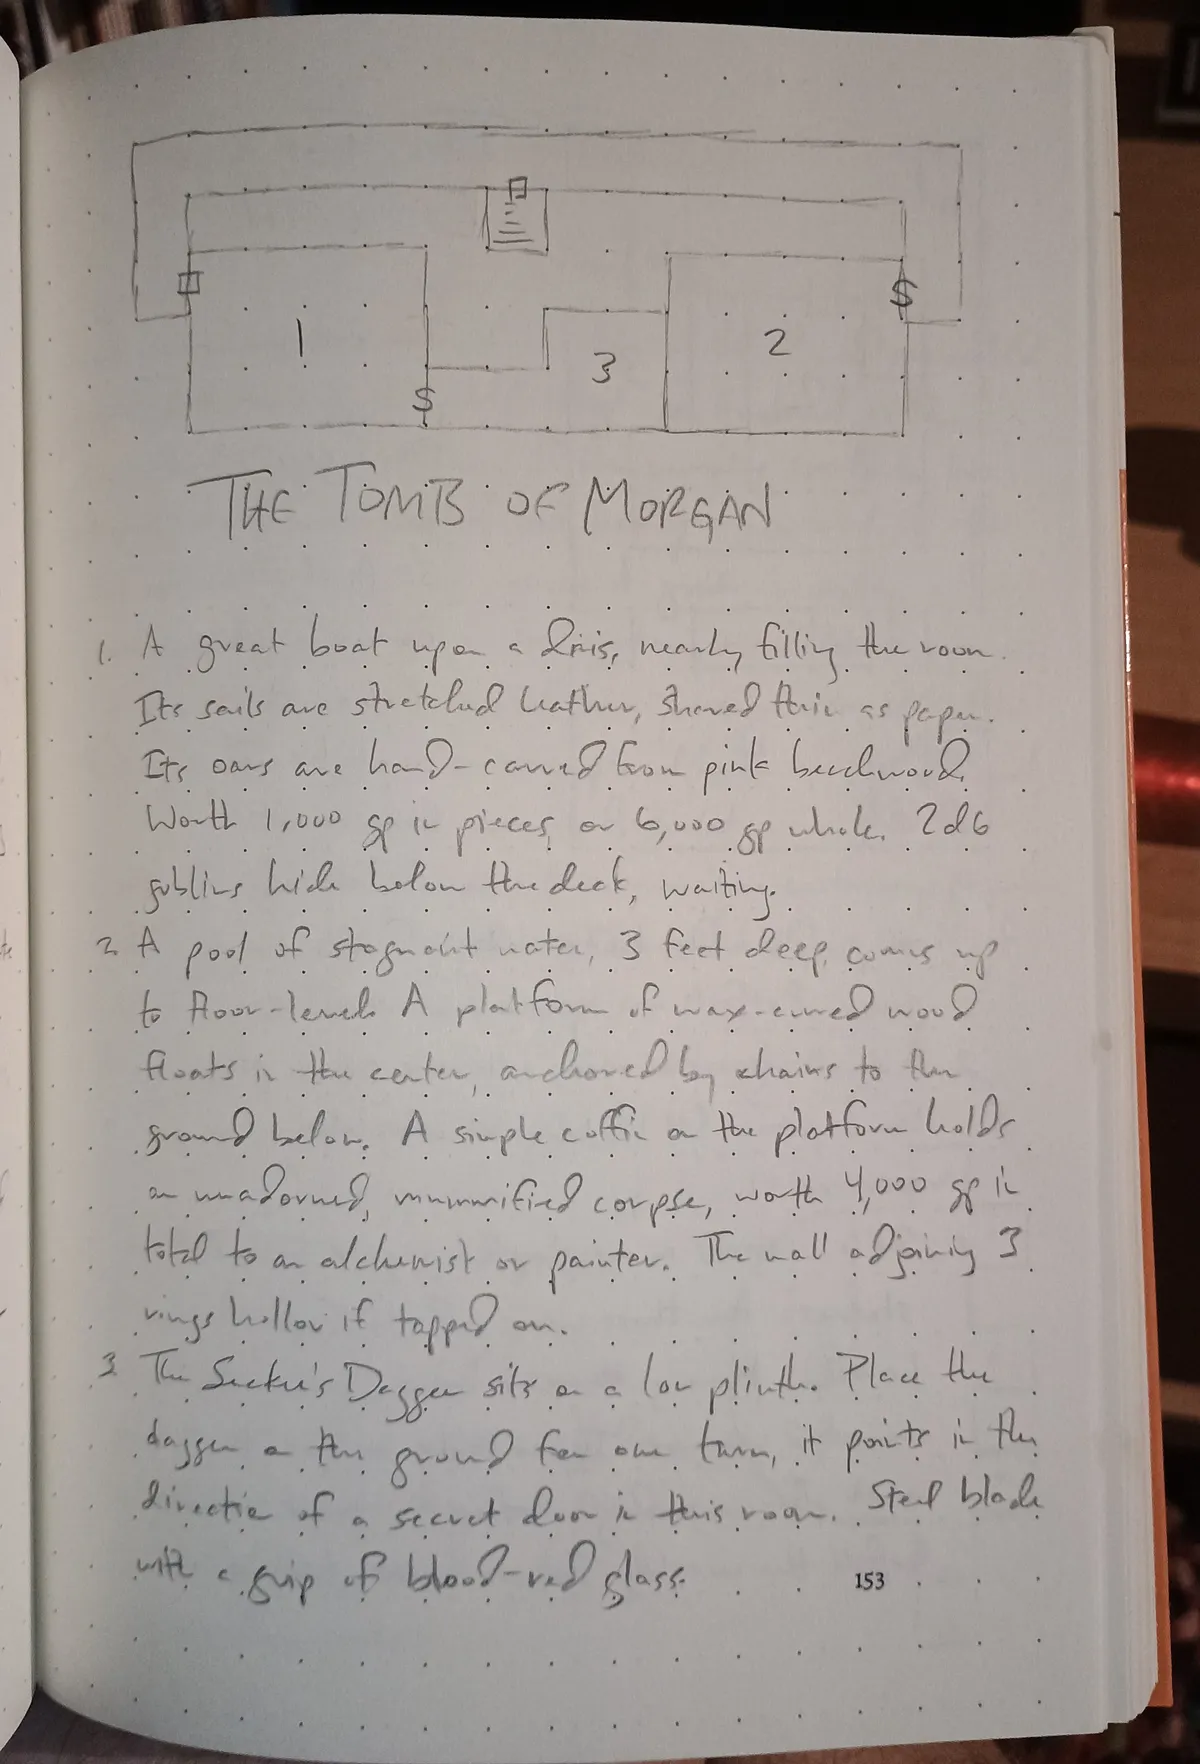 1
2
3
S
S
THE TOMB OF MORGAN
1. A great boat upon a dais, nearly filling the room.
Its sails are stretched leather, shaved thin as paper.
Its oars are hand-carved from pink beechwood.
Worth 1,000 gp in pieces, or 6,000 gp whole. 2d6
goblins hide below the deck, waiting.
2. A pool of stagnant water, 3 feet deep, comes up
to floor-level. A platform of wax-cured wood
floats in the center, anchored by chains to the
ground below. A simple coffin on the platform holds
an unadorned, mummified corpse, worth 4,000 gp in
total to an alchemist or painter. The wall adjoining 3
rings hollow if tapped on.
3. The Seeker's Dagger sits on a low plinth. Place the
dagger on the ground for one turn, it points in the
direction of a secret door in this room. Steel blade
with a grip of blood-red glass.
153